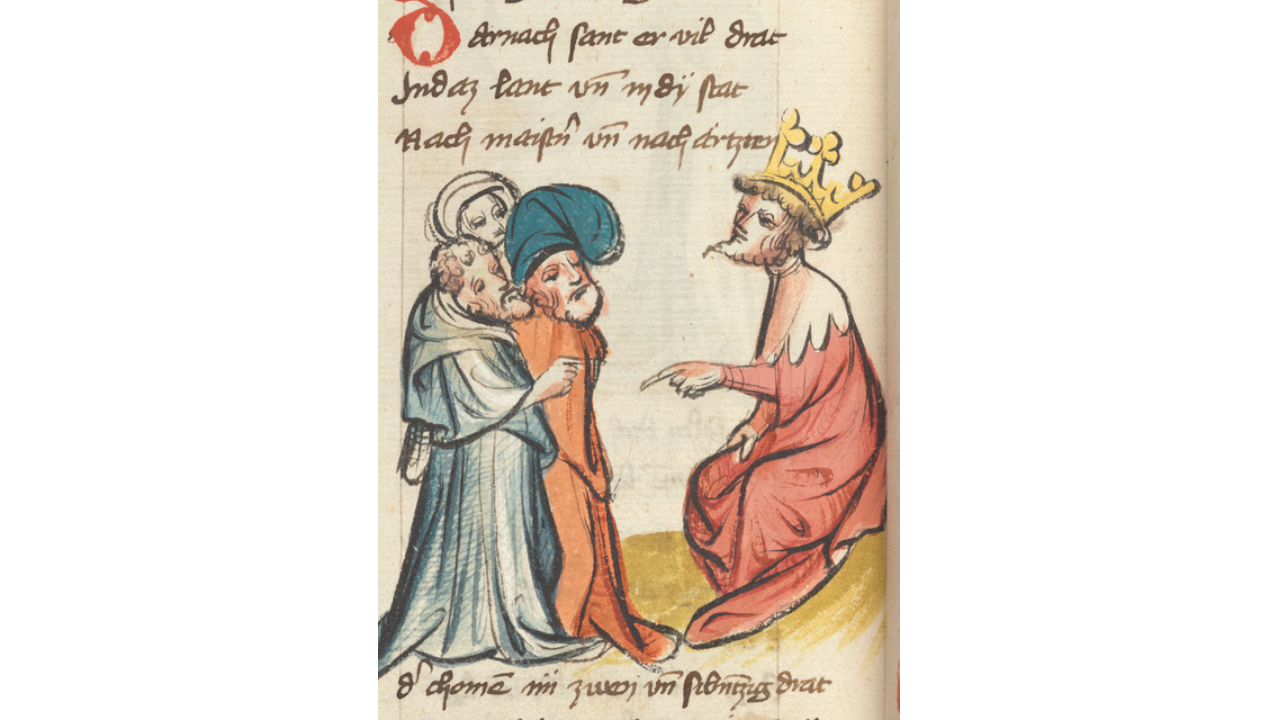 Darnach sant er vil drat
In daz lant vn̄ in dÿ stat
Nach maistn̄ vn̄ nach ärtzten
d' chomē im zwen vn̄ sibn̄tzig drat